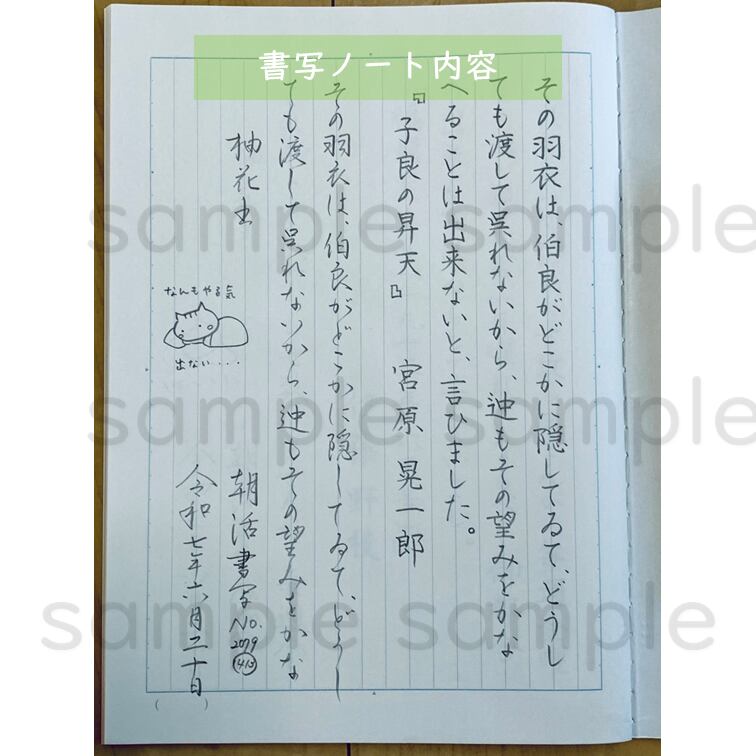 書写ノート内容
その羽衣は、伯良がどこかに隠してゐて、どうし
ても渡して呉れないから、迚もその望みをかな
へることは出来ないと、言ひました。
『子良の昇天』 宮原晃一郎
その羽衣は、伯良がどこかに隠してゐて、どうし
ても渡して呉れないから、迚もその望みをかな
柚花出
朝活書写No.2079
令和七年六月二十日
なんもやる気
出ない・・・
sample sample
sample sample
sample sample